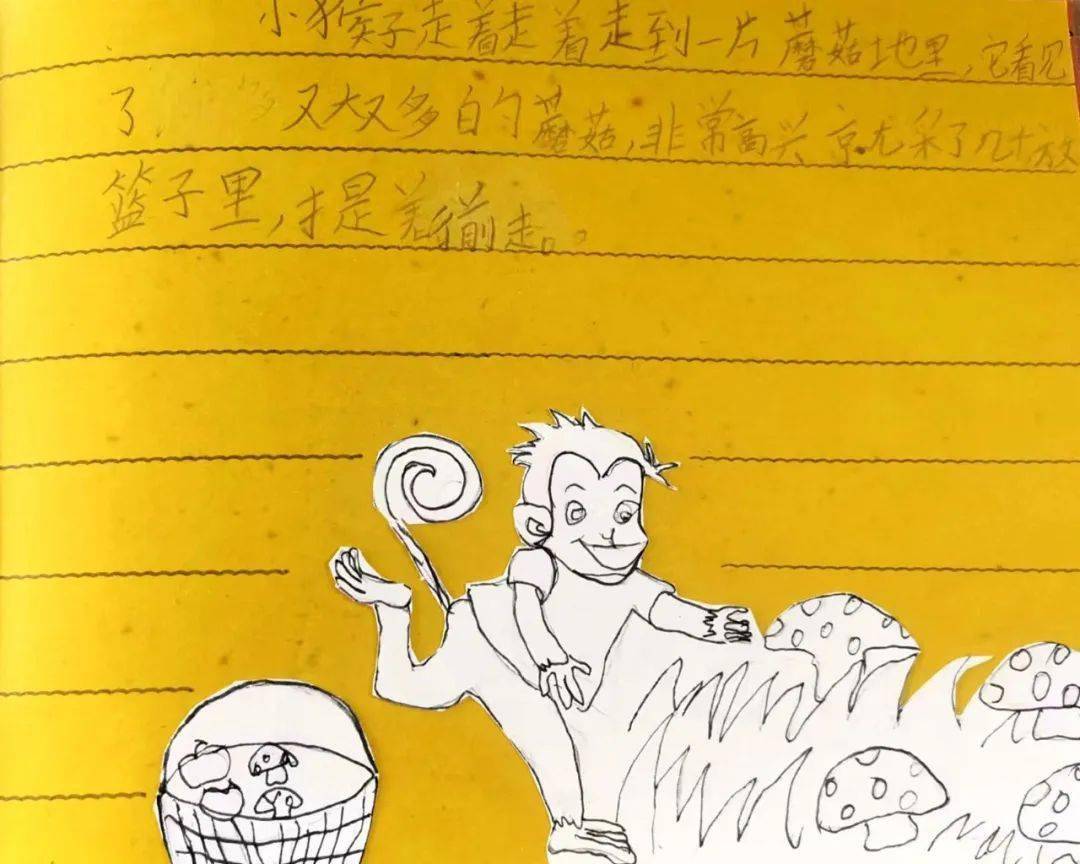 小猴子走着走着走到一片蘑菇地里,它看见
了 又大又多白的蘑菇,非常高兴 京尤采了几 放
篮子里,才是 着 前走。